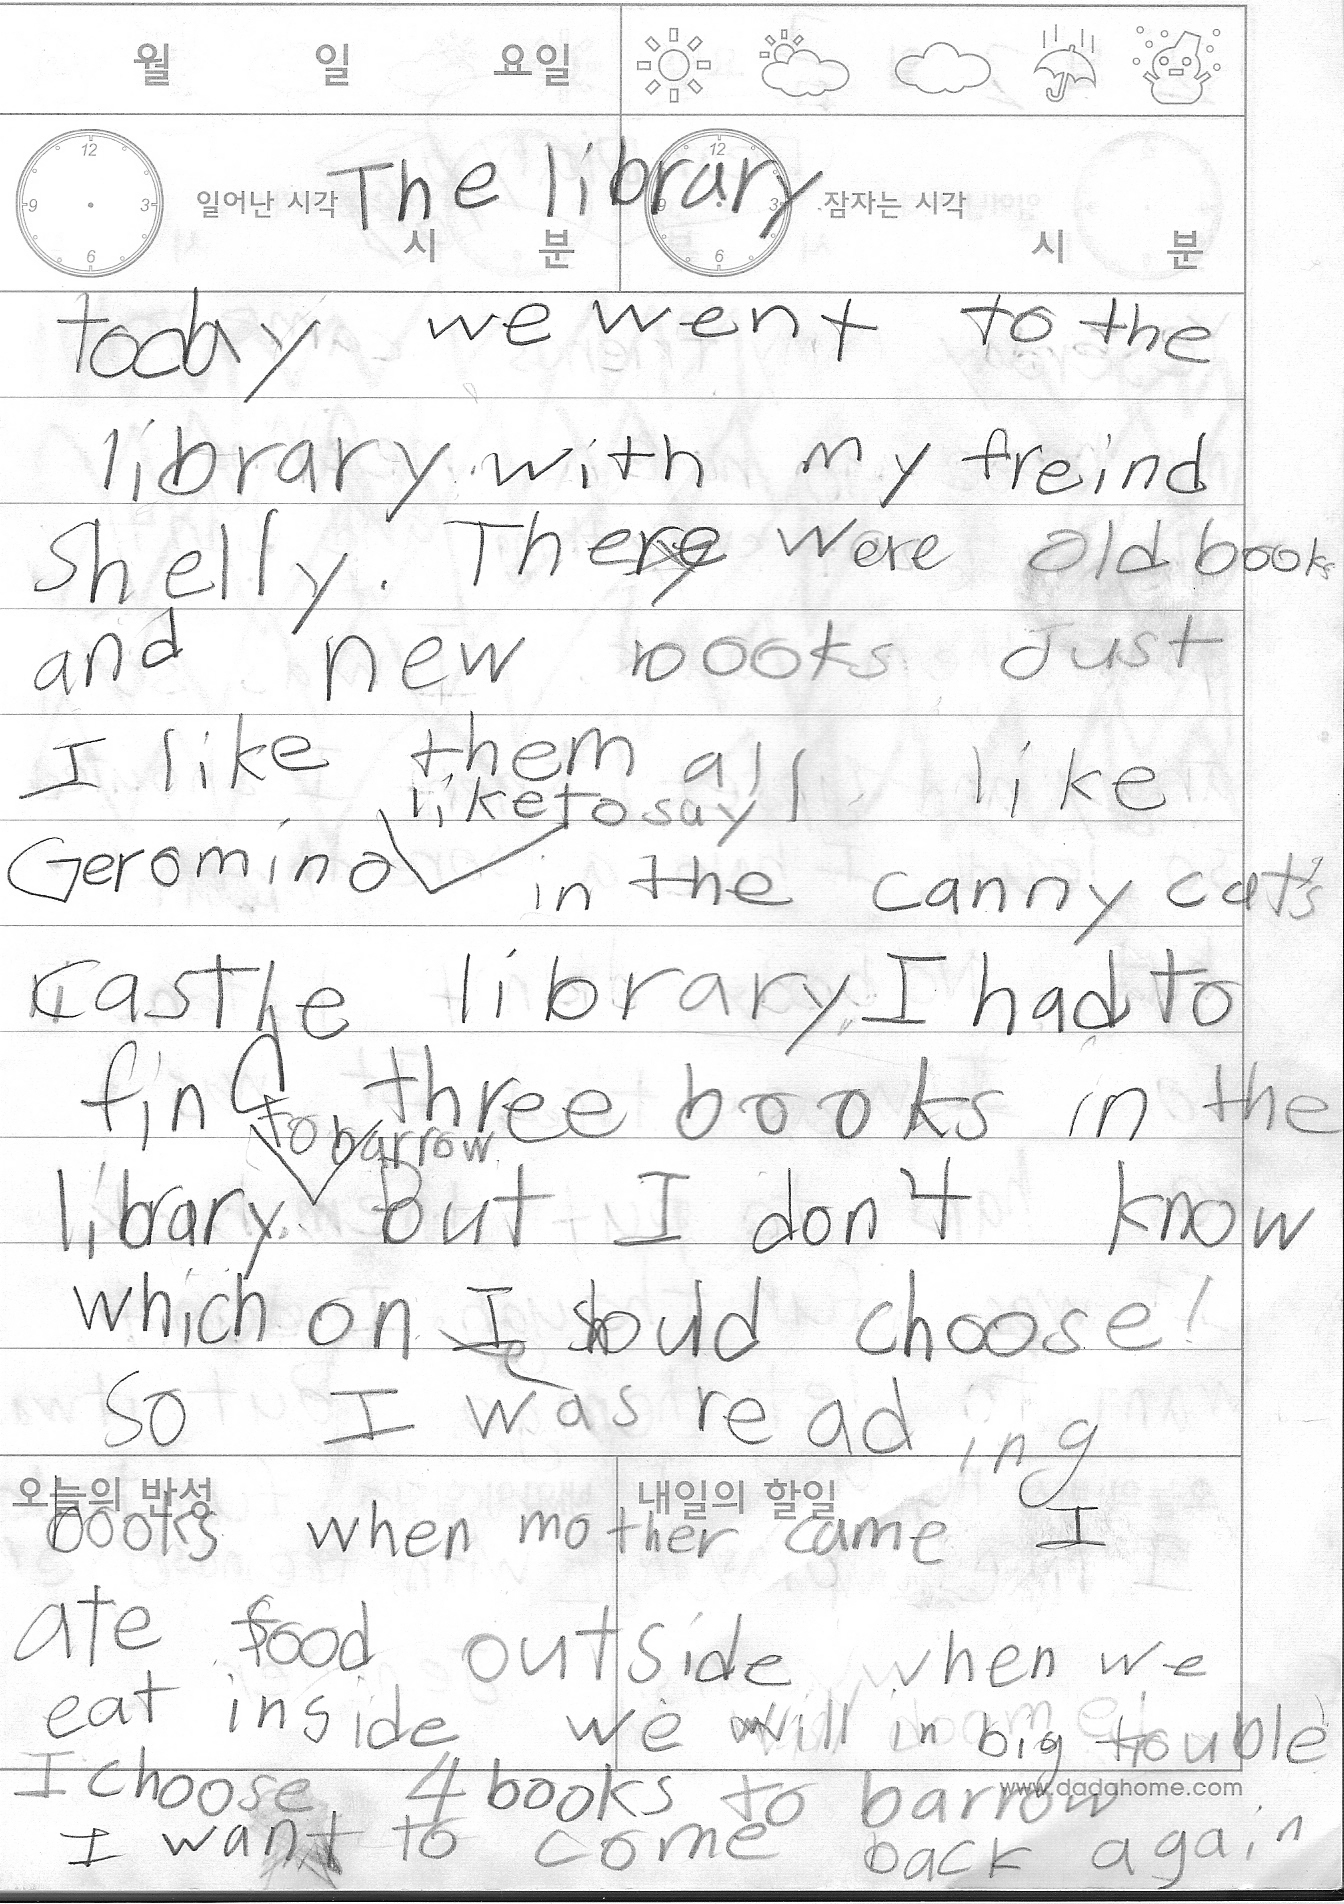 월 일 요일
12 3 6 9 일어난 시각 시 분 The library 12 3 6 9 잠자는 시각 시 분
today we went to the
library with my freind
Shelly. There were old books
and new books Just
I like them all like
like to say
Geromino in the canny cat's
castle library. I had to
find three books in the
to barrow
library. But I don't know
which on I sould choose!
e
So I was reading
오늘의 반성 내일의 할일
books when mother came I
ate food outside when we
eat inside we will in big touble
I choose 4 books to barrow
www.dadahome.com
I want to come back again